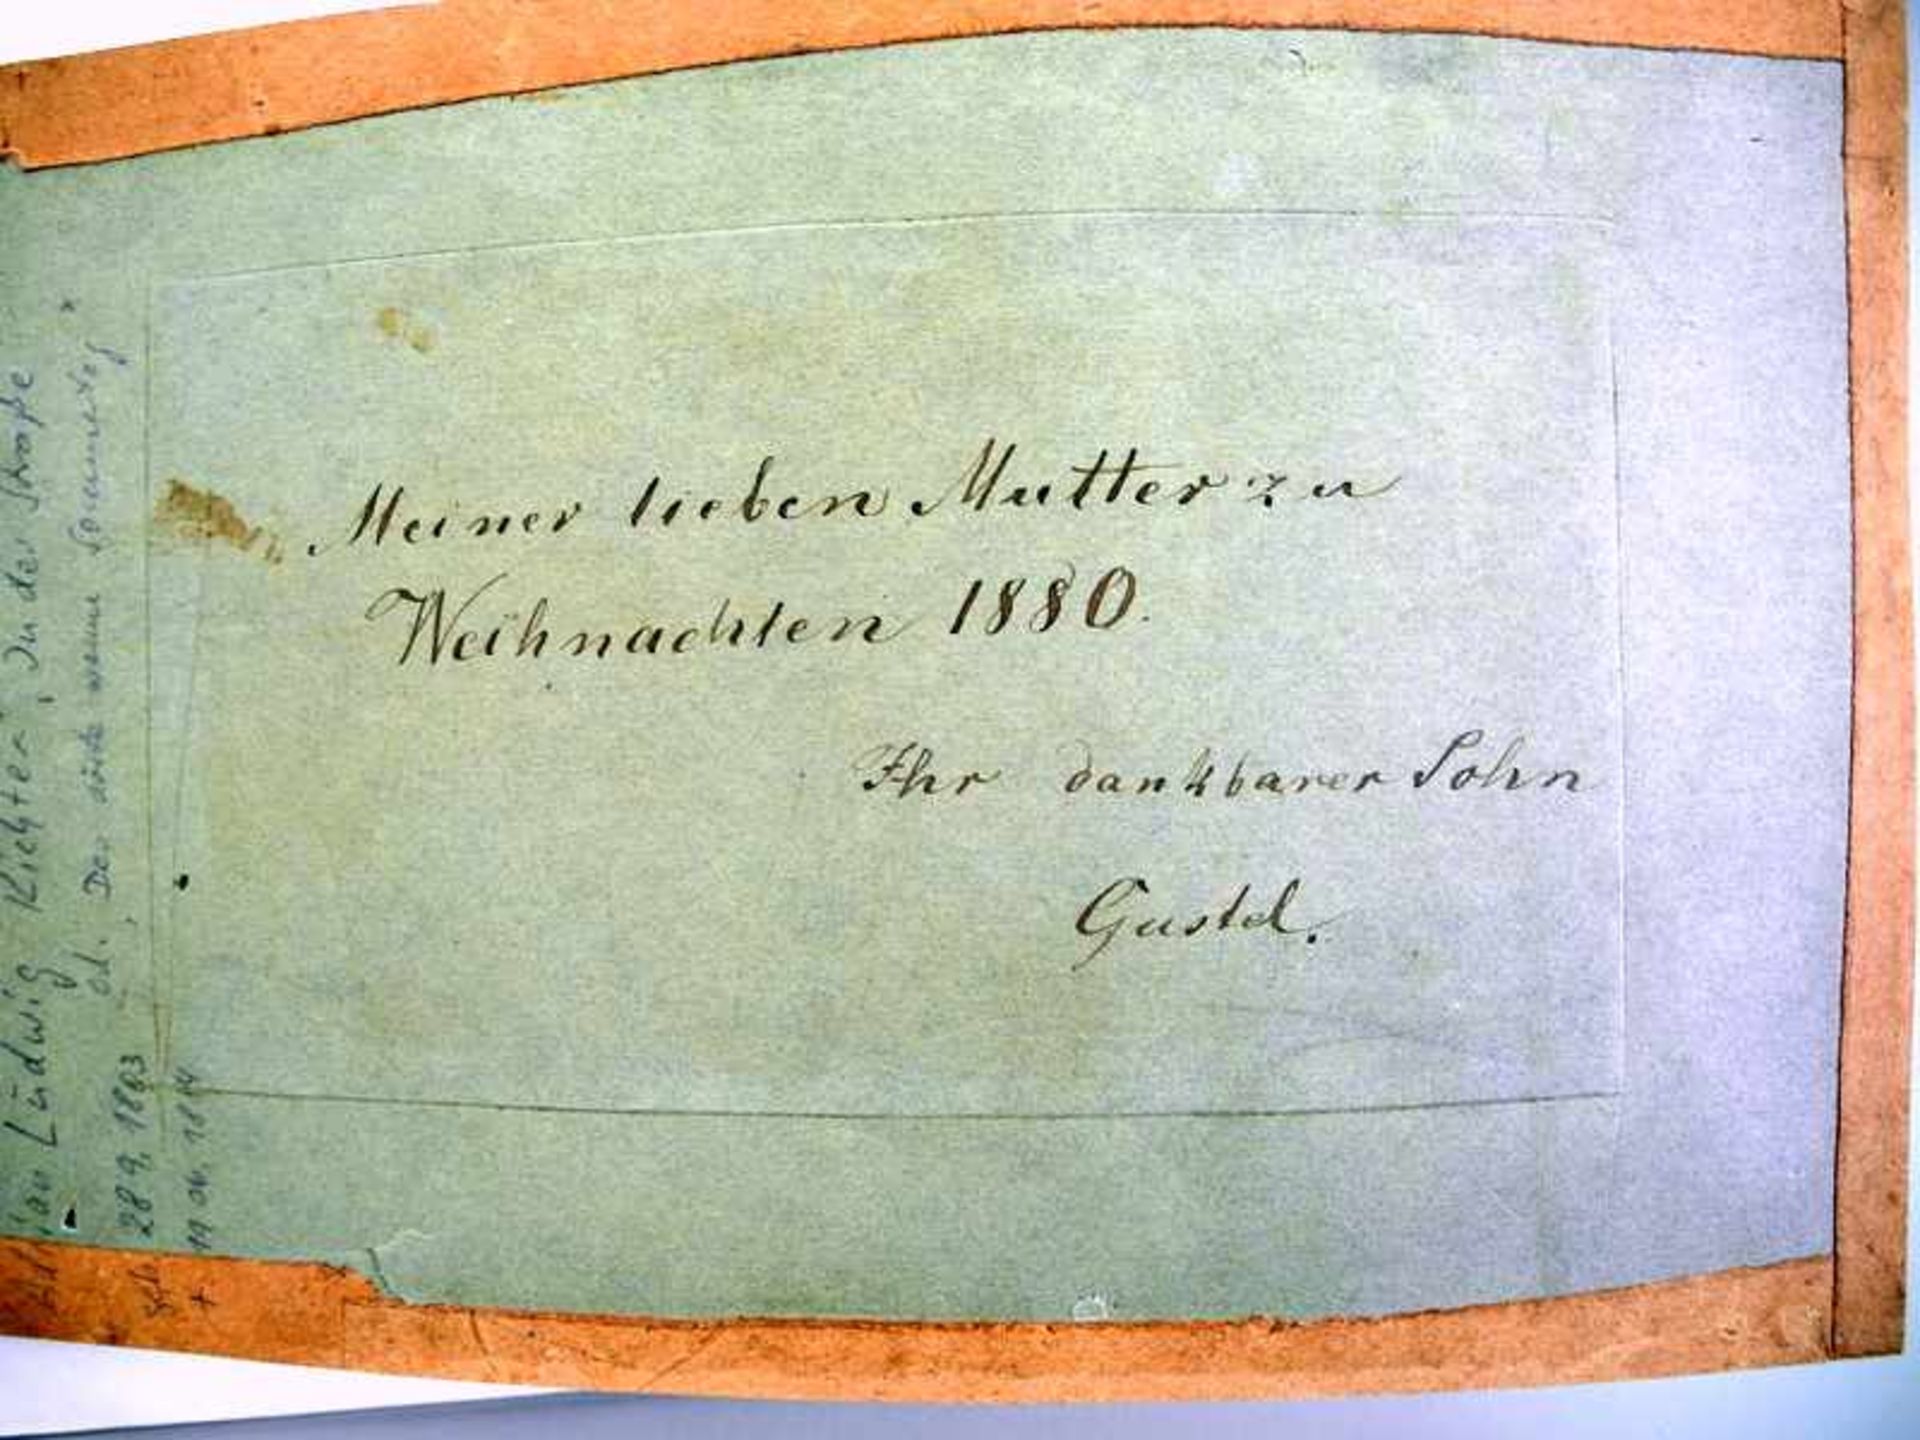 Meiner lieben Mutter zu
Weihnachten 1880.
Ihr dankbarer Sohn
Gustel.
Ludwig Richter "In der Straße
od. Der
28 9. 1803
+